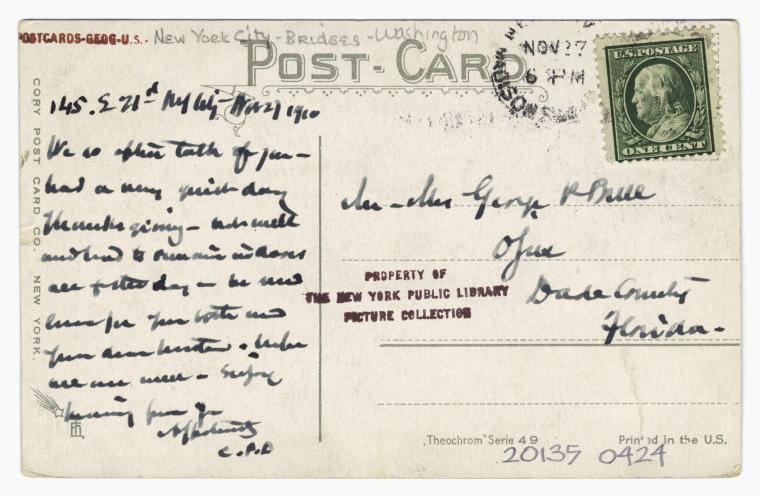 POSTCARDS-GEOG-U.S. - New York City - Bridges - Washington
POST-CARD
NOV 27
6 PM
MADISON
U.S. POSTAGE
ONE CENT
CORY POST CARD CO. NEW YORK.
145. E 71st Ny City - Nov 27 1910
We so often talk of you -
had a very quiet day
Thanksgiving -
and had to remain indoors
all yesterday -
love for you both and
your dear
all are well - Enjoy
hearing from you
Affectionately
C.P.D
Mr - Mrs George R B
Ojus
Dade County
Florida -
PROPERTY OF
THE NEW YORK PUBLIC LIBRARY
PICTURE COLLECTION
„Theochrom" Serie 49
Printed in the U.S.
20135 0424